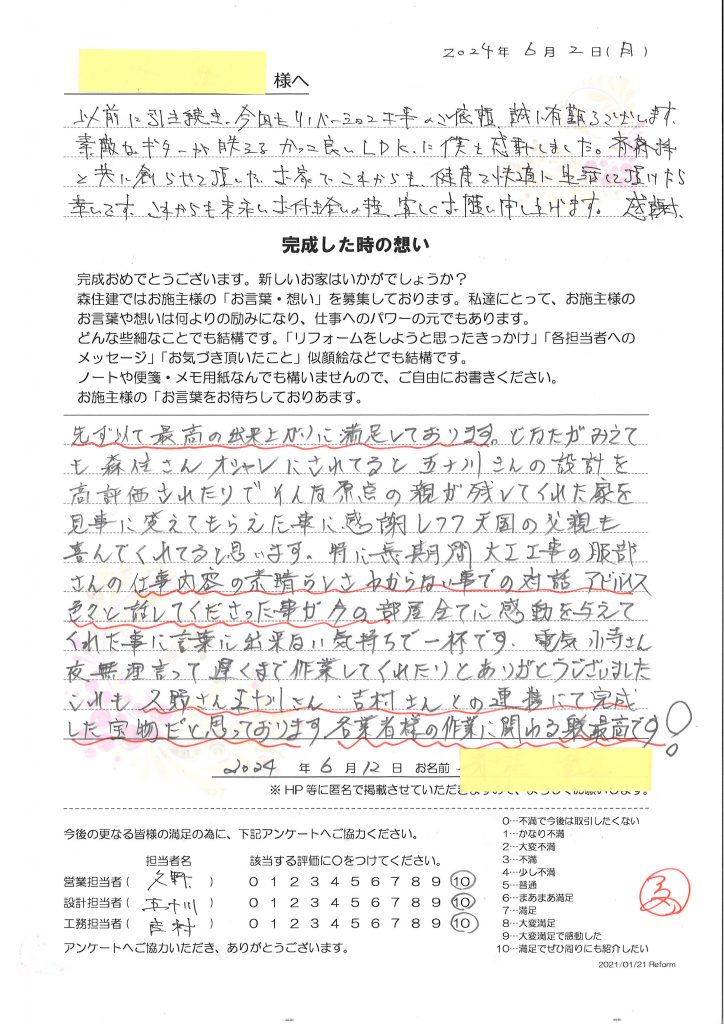 2024年 6月 2日(月)
様へ
以前に引き続き、今回もリノベーションの工事のご依頼、誠に有難うございます。
素敵なギターが映えるかっこ良いLDK、に僕も感動しました。
と共に創らせて頂したお家で、これからも、健康で快適に生活して頂けたら
幸いです。これからも末永いお付き合いの程、宜しくお願い申し上げます。 感謝
完成した時の想い
完成おめでとうございます。新しいお家はいかがでしょうか?
森住建ではお施主様の「お言葉・想い」を募集しております。私達にとって、お施主様の
お言葉や想いは何よりの励みになり、仕事へのパワーの元でもあります。
どんな些細なことでも結構です。「リフォームをしようと思ったきっかけ」「各担当者への
メッセージ」「お気づき頂いたこと」似顔絵などでも結構です。
ノートや便箋・メモ用紙なんでも構いませんので、ご自由にお書きください。
お施主様の「お言葉をお待ちしておりあます。
先ず以て最高の出来上がりに満足しております。どなたがみえて
も 森住さんオシャレにされてると五十川さんの設計を
高評価されたりでそんな原点の親が残してくれた家を
見事に変えてもらえた事に感謝しつつ天国の父親も
喜んでくれてると思います。特に長期間 大工工事の服部
さんの仕事内容の素晴らしさ わからない事での対話 アドバイス
色々と話してくださった事が今の部屋全てに感動を与えて
くれた事に言葉に出来ない気持ちで一杯です。電気 小寺さん
夜、無理言って遅くまで作業してくれたりとありがとうございました
これも 久野さん五十川さん・吉村さんとの連携にて完成
した宝物だと思っております 各業者様の作業に関わる 最高です!
2024 年 6 月 12 日 お名前
※HP等に匿名で掲載させていただきますので、よろしくお願いします。
今後の更なる皆様の満足の為に、下記アンケートへご協力ください。
担当者名 該当する評価に○をつけてください。
営業担当者( 久野 ) 0 1 2 3 4 5 6 7 8 9 10
設計担当者( 五十川 ) 0 1 2 3 4 5 6 7 8 9 10
工務担当者( 吉村 ) 0 1 2 3 4 5 6 7 8 9 10
アンケートへご協力いただき、ありがとうございます。
0…不満で今後は取引したくない
1…かなり不満
2…大変不満
3…不満
4…少し不満
5…普通
6…まあまあ満足
7…満足
8…大変満足
9…大変満足で感動した
10…満足でぜひ周りにも紹介したい
2021/01/21 Reform